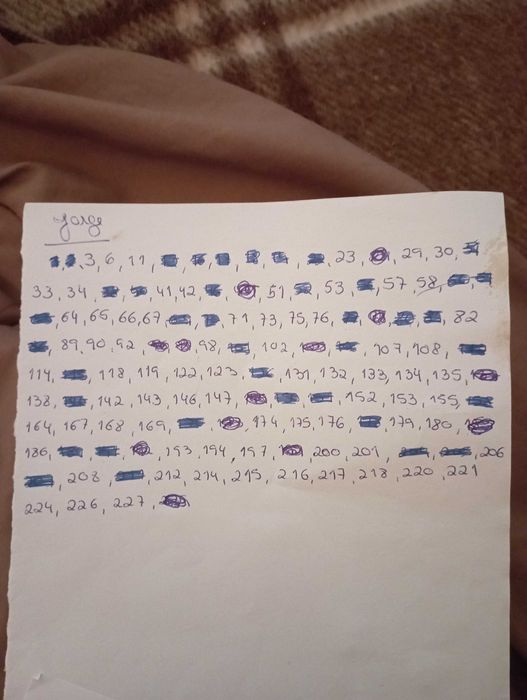 Jorge
3, 6, 11, 23, 29, 30,
33, 34, 41, 42, 51, 53, 57, 58,
64, 65, 66, 67, 71, 73, 75, 76, 82
89, 90, 92, 98, 102, 107, 108,
114, 118, 119, 122, 123, 131, 132, 133, 134, 135,
138, 142, 143, 146, 147, 152, 153, 155,
164, 167, 168, 169, 174, 175, 176, 179, 180,
186, 193, 194, 197, 200, 201, 206
208, 212, 214, 215, 216, 217, 218, 220, 221
224, 226, 227,